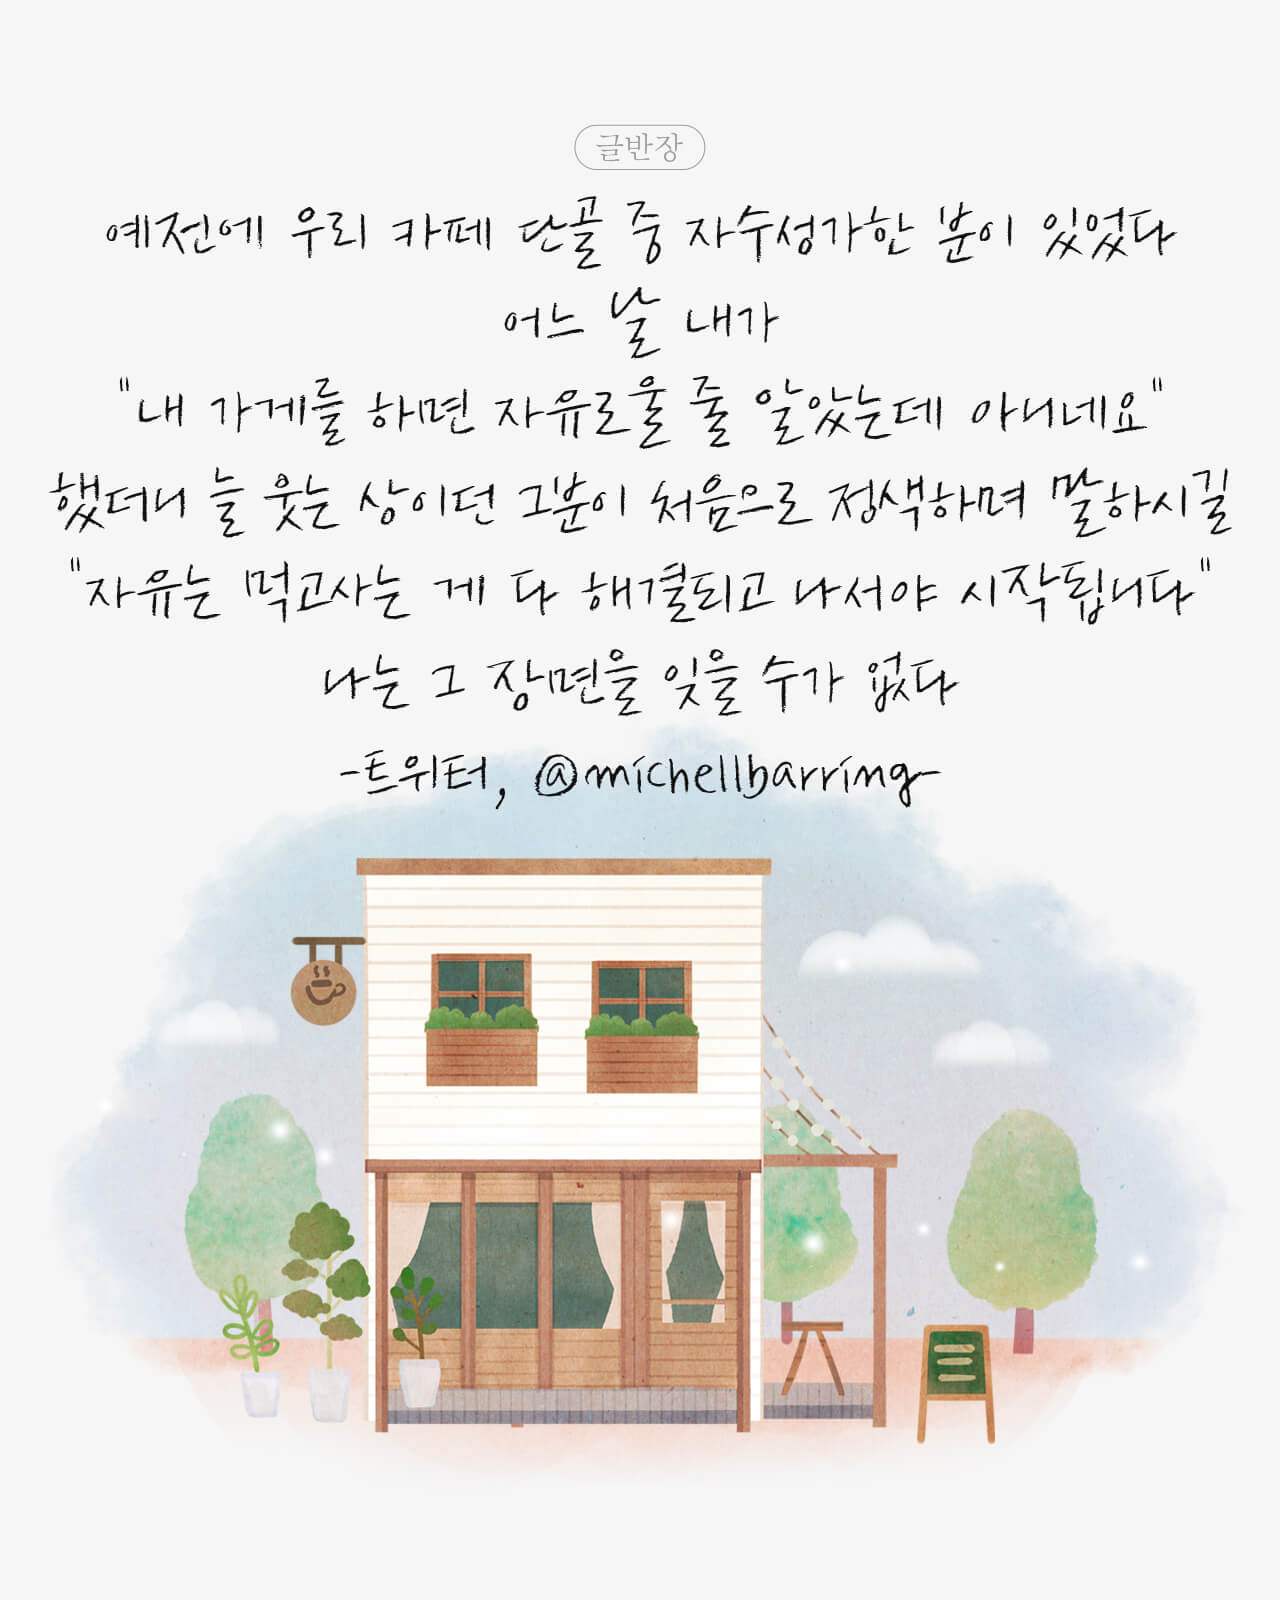 글반장
예전에 우리 카페 단골 중 자수성가한 분이 있었다
어느 날 내가
"내 가게를 하면 자유로울 줄 알았는데 아니네요"
했더니 늘 웃는 상이던 그분이 처음으로 정색하며 말하시길
"자유는 먹고사는 게 다 해결되고 나서야 시작됩니다"
나는 그 장면을 잊을 수가 없다
-트위터, @michellbarring-